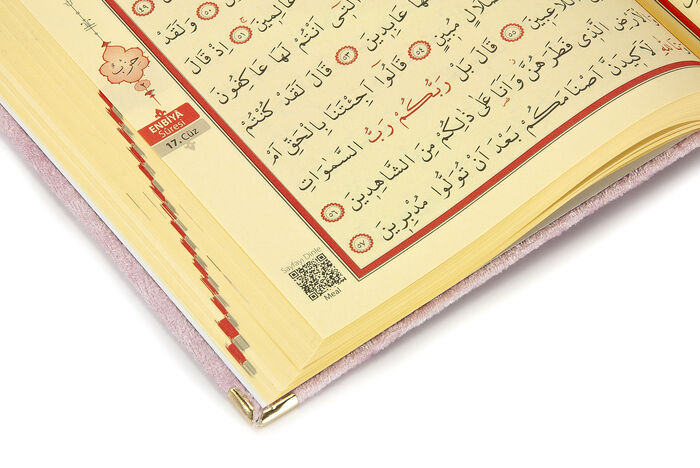 ٤٩
وَلَقَدْ
عَالِمِينَ ٥١ اِذْ قَالَ
الَّتٖى اَنْتُمْ لَهَا عَاكِفُونَ
لَهَا عَابِدٖينَ ٥٣ قَالَ لَقَدْ كُنْتُمْ
ضَلَالٍ مُبٖينٍ ٥٤ قَالُٓوا اَجِئْتَنَا بِالْحَقِّ اَمْ
اللَّاعِبٖينَ ٥٥ قَالَ بَلْ رَبُّكُمْ رَبُّ السَّمٰوَاتِ
وَالْاَرْضِ الَّذٖى فَطَرَهُنَّ وَاَنَا۬ عَلٰى ذٰلِكُمْ مِنَ الشَّاهِدٖينَ ٥٦
لَاَكٖيدَنَّ اَصْنَامَكُمْ بَعْدَ اَنْ تُوَلُّوا مُدْبِرٖينَ ٥٧
حزب
ENBİYÂ
Sûresi
17. Cüz
Sayfayı Dinle
Meal